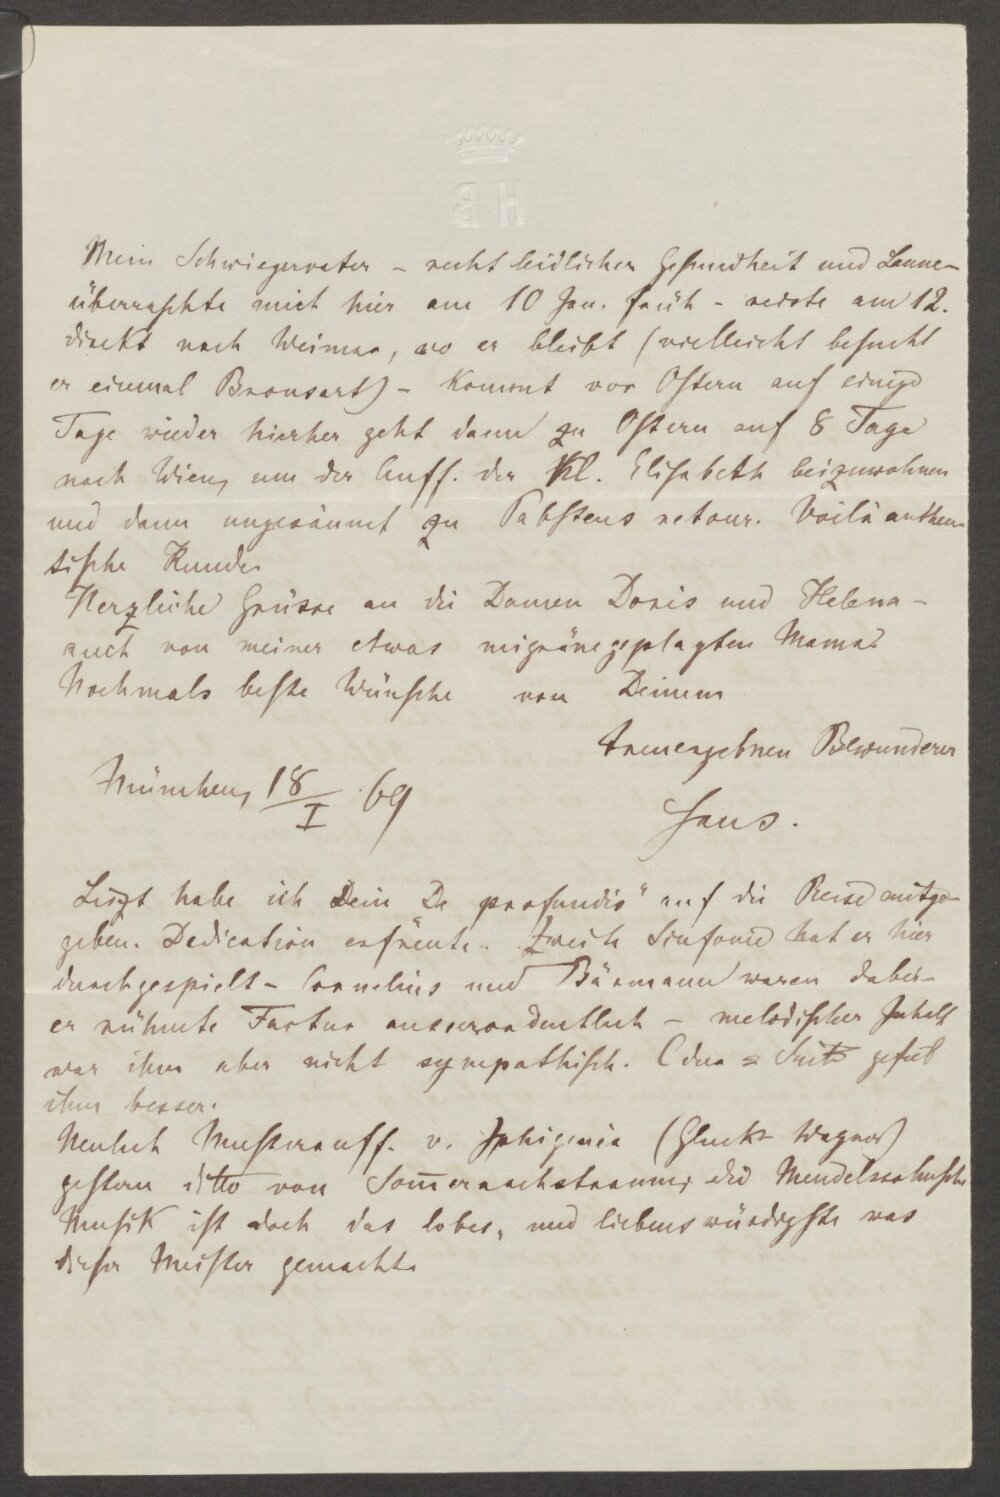 HB
Mein Schwiegervater – recht leidlicher Gesundheit und Laune –
überraschte mich hier am 10 Jan. früh – reiste am 12.
direkt nach Weimar, wo er bleibt (vielleicht besucht
er einmal Bronsart) – kommt vor Ostern auf einige
Tage wieder hierher geht dann zu Ostern auf 8 Tage
nach Wien, um der Auff. der Hl. Elisabeth beizuwohnen
und dann ungesäumt zu Pabstens retour. Voilà authen
tische Kunde.
Herzliche Grüsse an die Damen Doris und Helena –
auch von meiner etwas migränegeplagten Mama.
Nochmals beste Wünsche von Deinem
treuergebnen Bewunderer
München, 18/I 69
Hans.
Liszt habe ich Dein De profundis" auf die Reise mitge-
geben. Dedication erfreute. Zweite Sinfonie hat er hier
durchgespielt – Cornelius und Bärmann waren dabei –
er rühmte Factur ausserordentlich – melodischer Inhalt
war ihm aber nicht sympathisch. Cdur = Suite gefiel
ihm besser.
Neulich Musterauff. v. Iphigenia (Gluck-Wagner)
gestern ditto von Som̅ernachtstraum, die Mendelssohnsche
Musik ist doch das lobes- und liebenswürdigste was
dieser Meister gemacht.